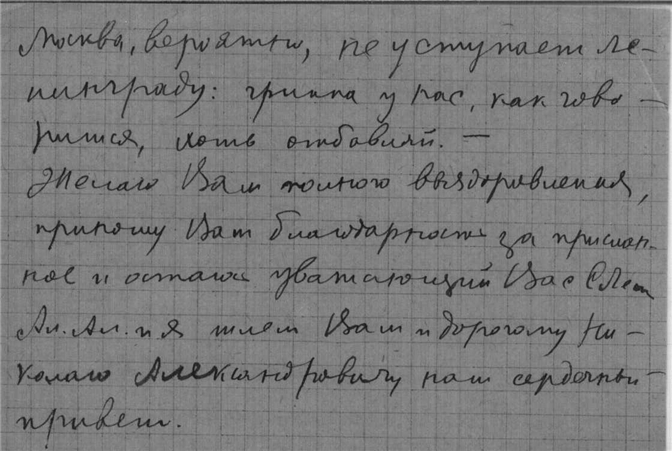 Москва, вероятно, не уступает Ле-
нинграду: гриппа у нас, как гово-
рится, хоть отбавляй. —
Желаю Вам полного выздоровления,
приношу Вам благодарность за прислан-
ное и остаюсь уважающий Вас
Ал. Ал. и я шлем Вам и дорогому Ни-
колаю Александровичу наш сердечный
привет.